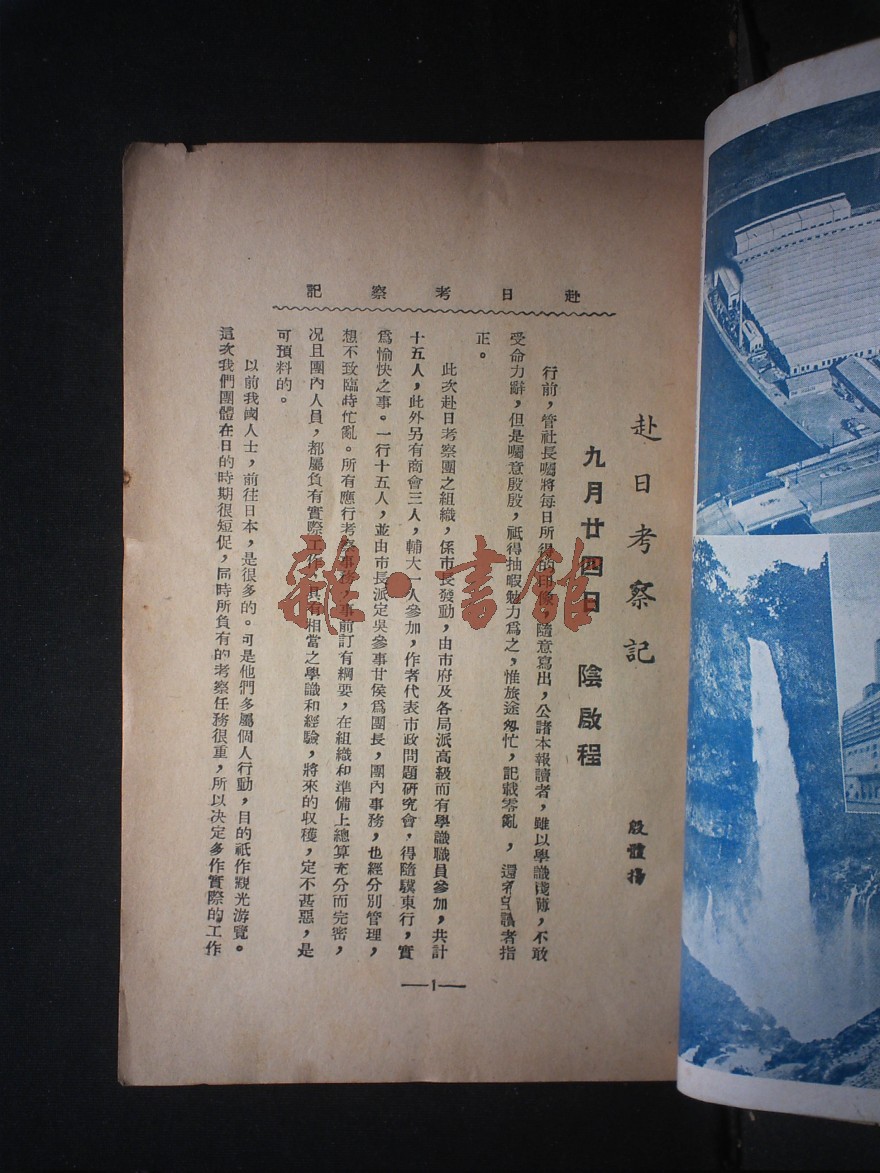 赴日考察記
赴日考察記
殷體揚
九月廿四日 陰啟程
行前，管社長囑將每日所得的印像，隨意寫出，公諸本報讀者，雖以學識淺陋，不敢
受命力辭，但是囑意殷殷，祇得抽暇勉力爲之，惟旅途匆忙，記載零亂，還希望讀者指
正。
此次赴日考察團之組織，係市長發動，由市府及各局派高級而有學識職員參加，共計
十五人，此外另有商會三人，輔大一人參加，作者代表市政問題研究會，得隨驥東行，實
爲愉快之事。一行十五人，並由市長派定吳參事甘侯爲團長，團內事務，也經分別管理，
想不致臨時忙亂。所有應行考察事務，事前訂有綱要，在組織和準備上總算充分而完密，
况且團內人員，都屬負有實際工作，具有相當之學識和經驗，將來的收穫，定不甚惡，是
可預料的。
以前我國人士，前往日本，是很多的。可是他們多屬個人行動，目的祇作觀光游覽。
這次我們團體在日的時期很短促，同時所負有的考察任務很重，所以决定多作實際的工作
—1—
雜·書館